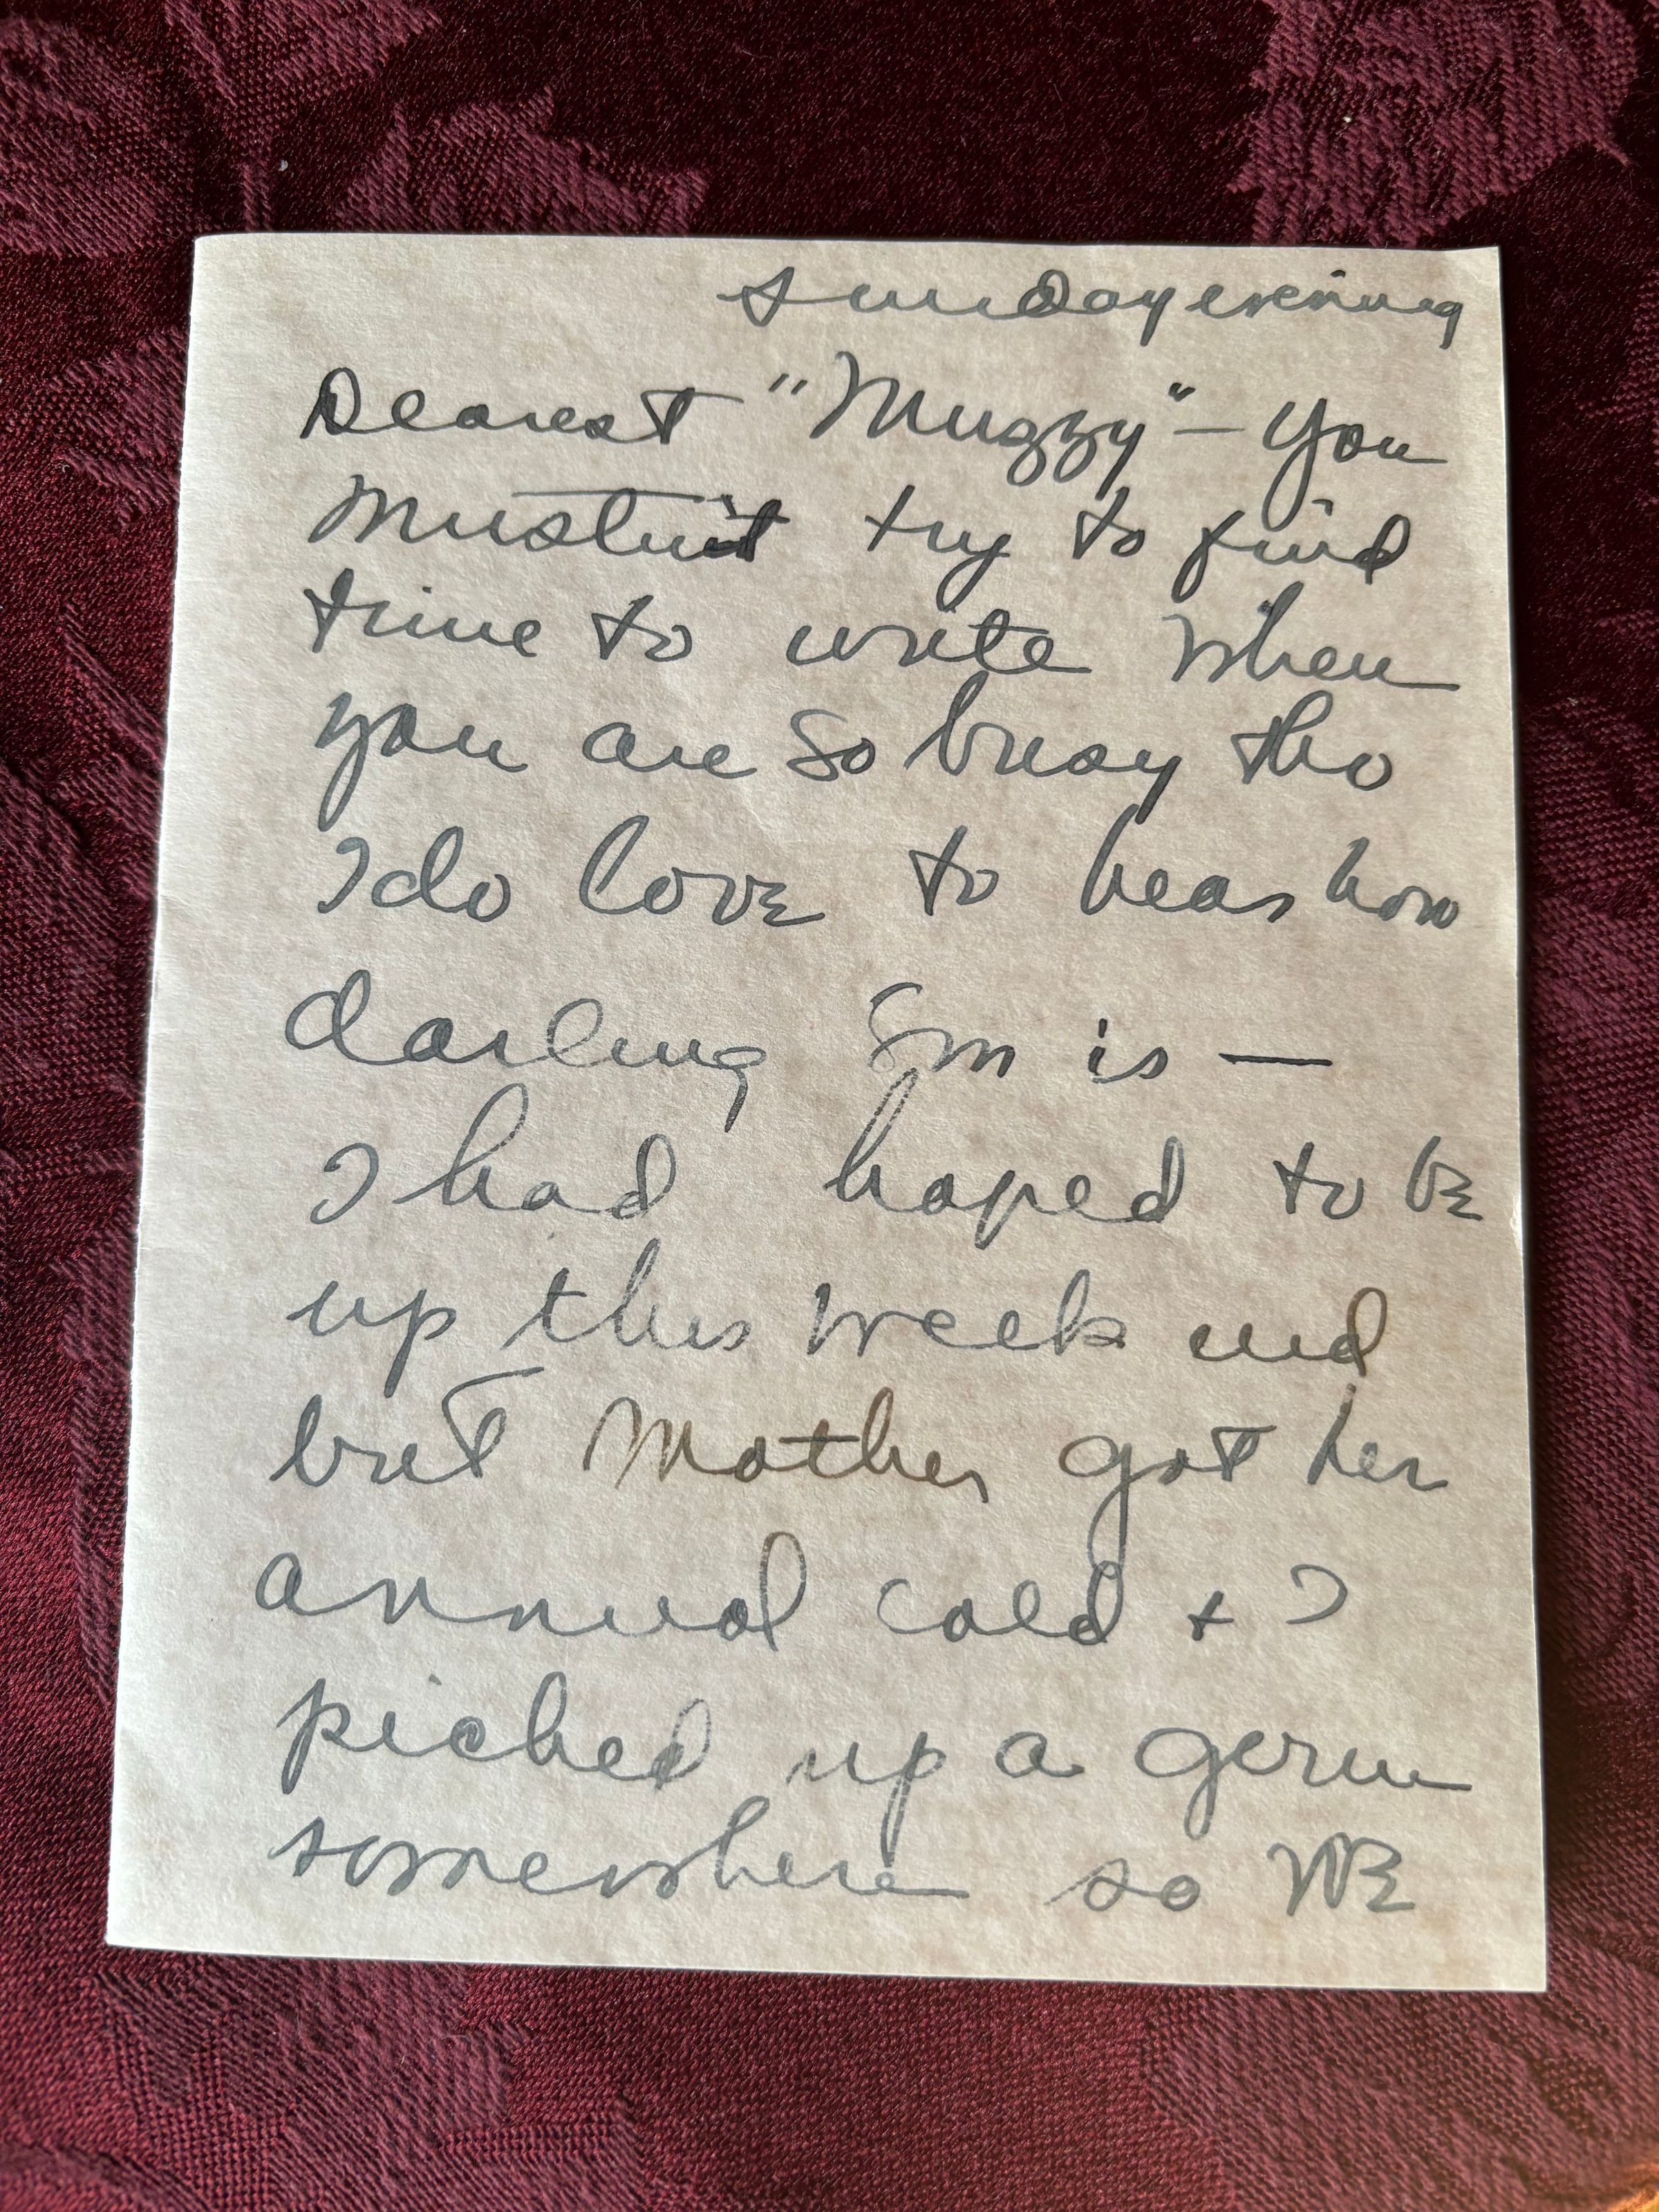 Sunday evening
Dearest "Muzzy" — You
mustn't try to find
time to write when
you are so busy tho
I do love to hear how
darling Em is —
I had hoped to be
up this week end
but Mother got her
annual cold + I
picked up a germ
somewhere so we